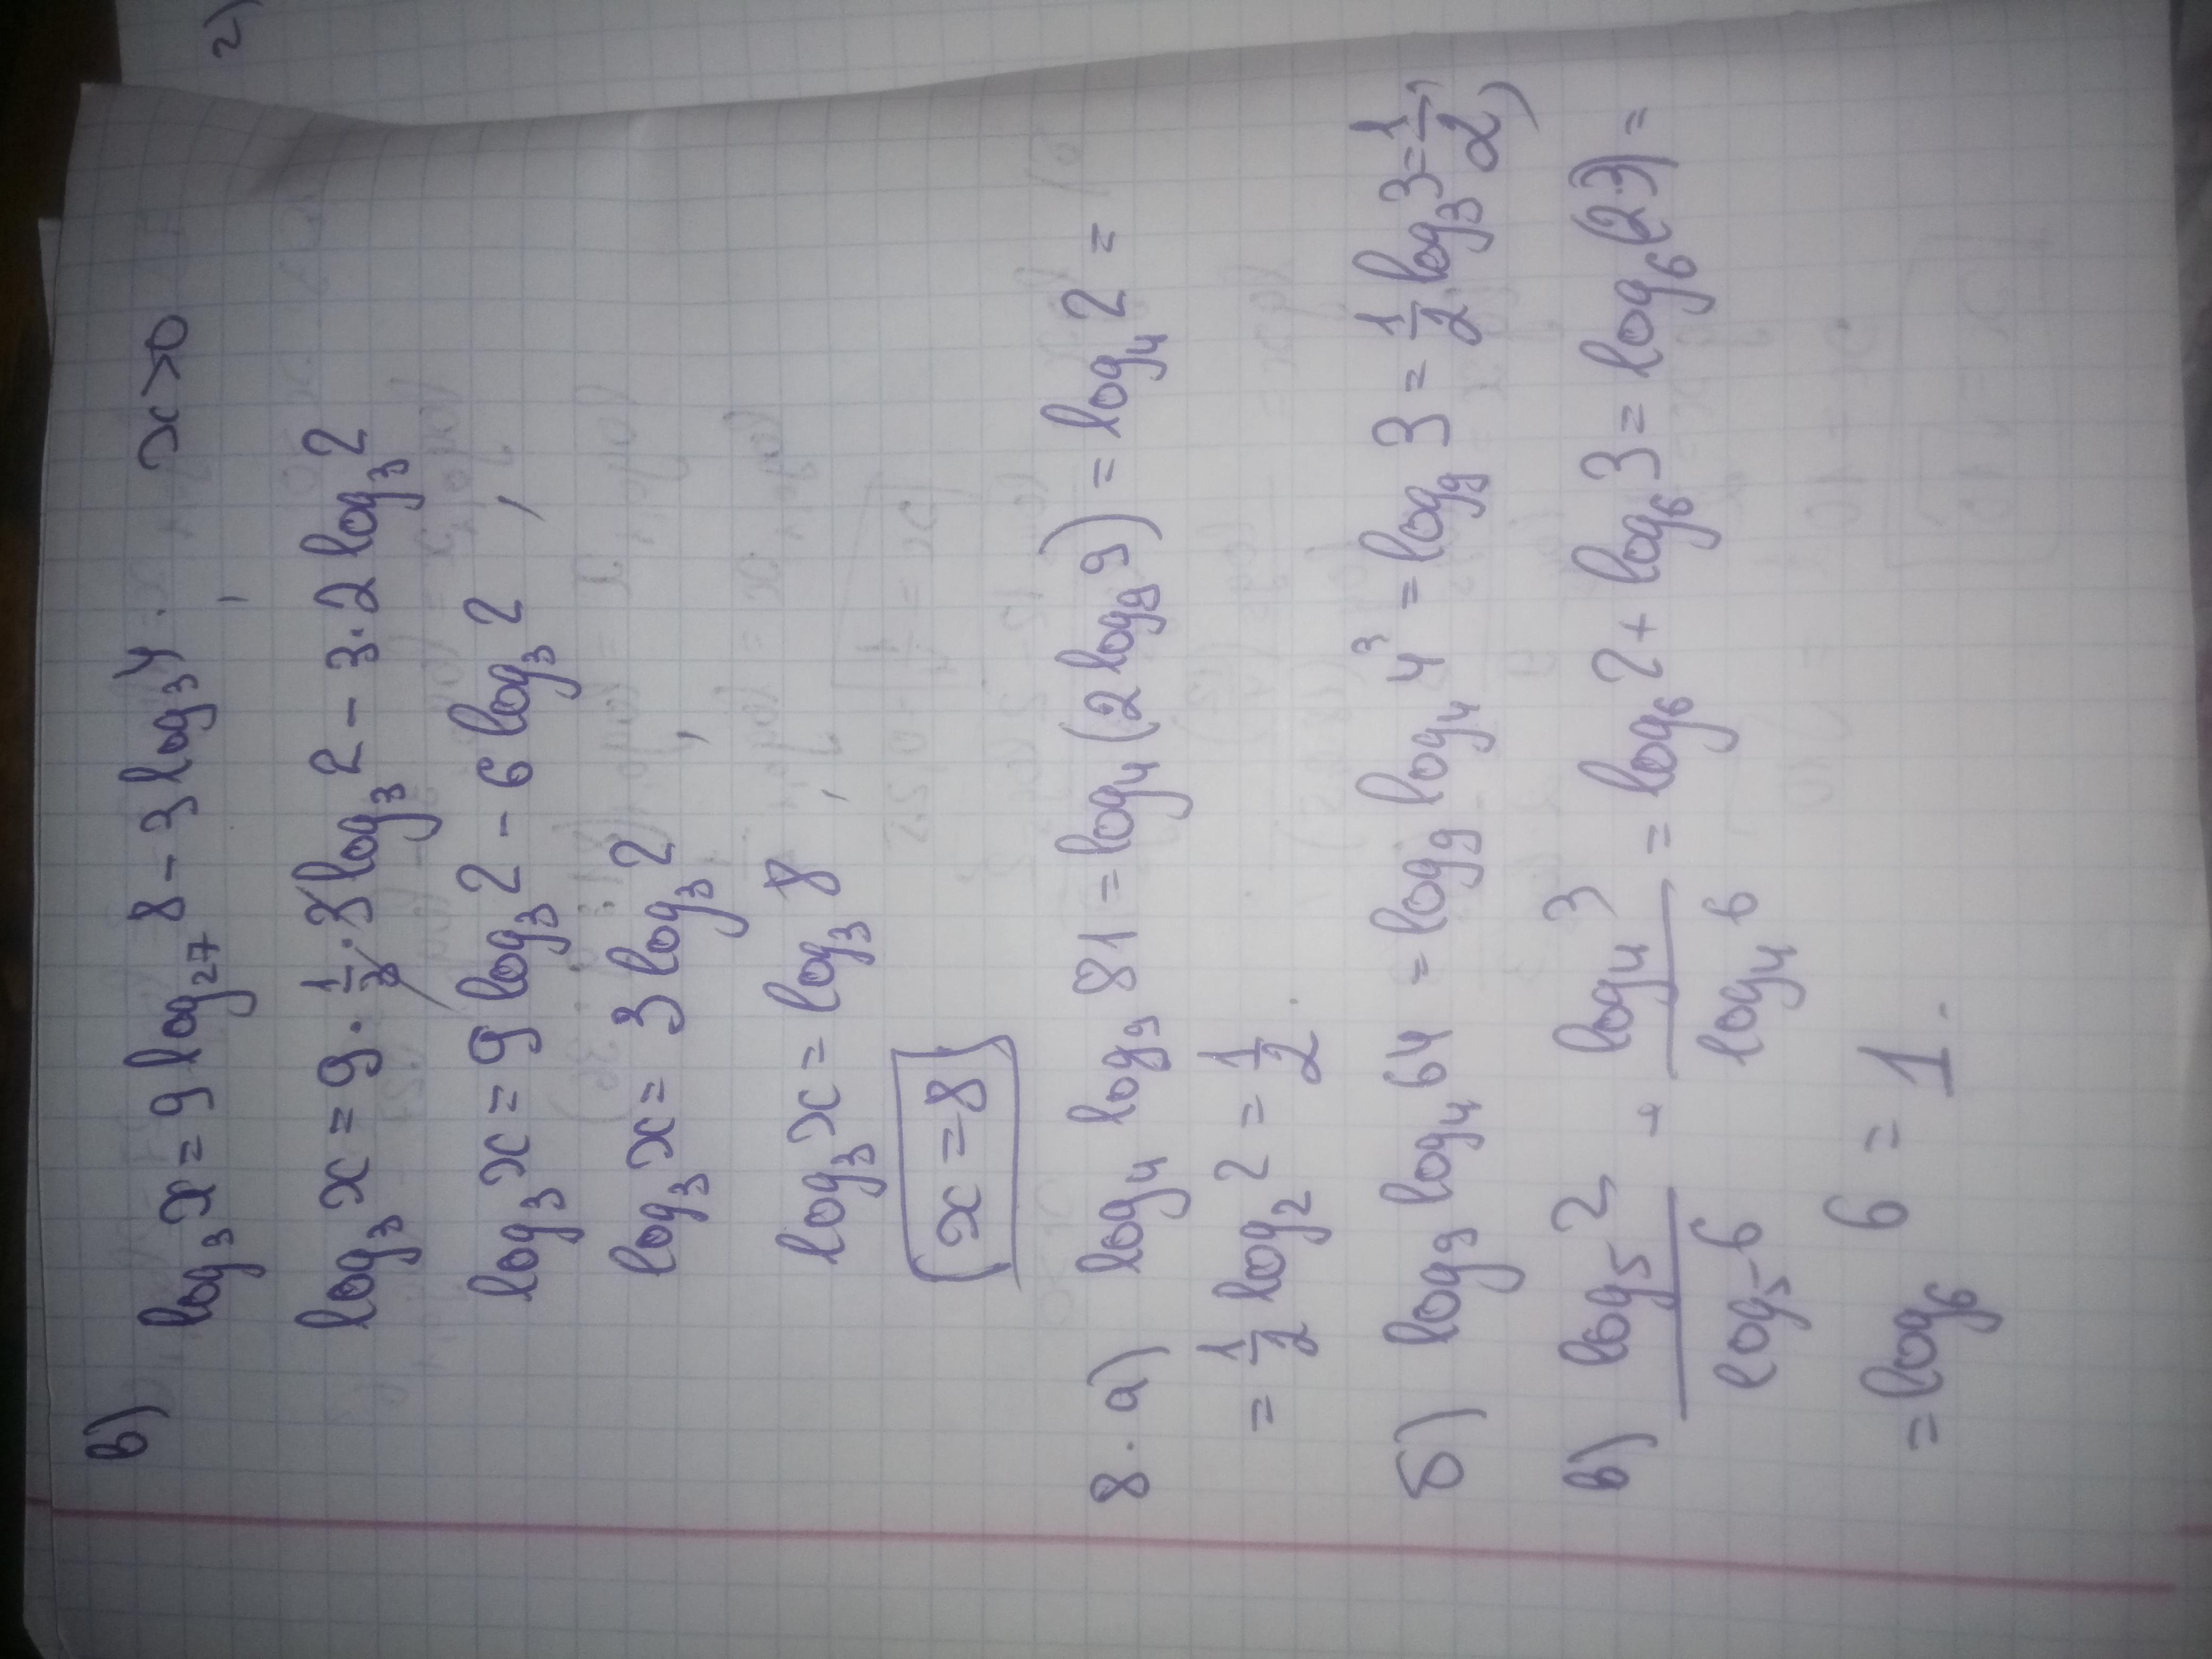 2)
в) log₃x = 9 log₂₇ 8 - 3 log₃ 4, x > 0
log₃ x = 9 · 1/3 · 3 log₃ 2 - 3 · 2 log₃ 2
log₃ x = 9 log₃ 2 - 6 log₃ 2,
log₃ x = 3 log₃ 2,
log₃ x = log₃ 8,
x = 8
8. а) log₄ log₉ 81 = log₄ (2 log₉ 9) = log₄ 2 =
= 1/2 log₂ 2 = 1/2.
б) log₉ log₄ 64 = log₉ log₄ 4³ = log₉ 3 = 1/2 log₃ 3 = 1/2,
в) log₅ 2 / log₅ 6 + log₄ 3 / log₄ 6 = log₆ 2 + log₆ 3 = log₆ (2·3) =
= log₆ 6 = 1.